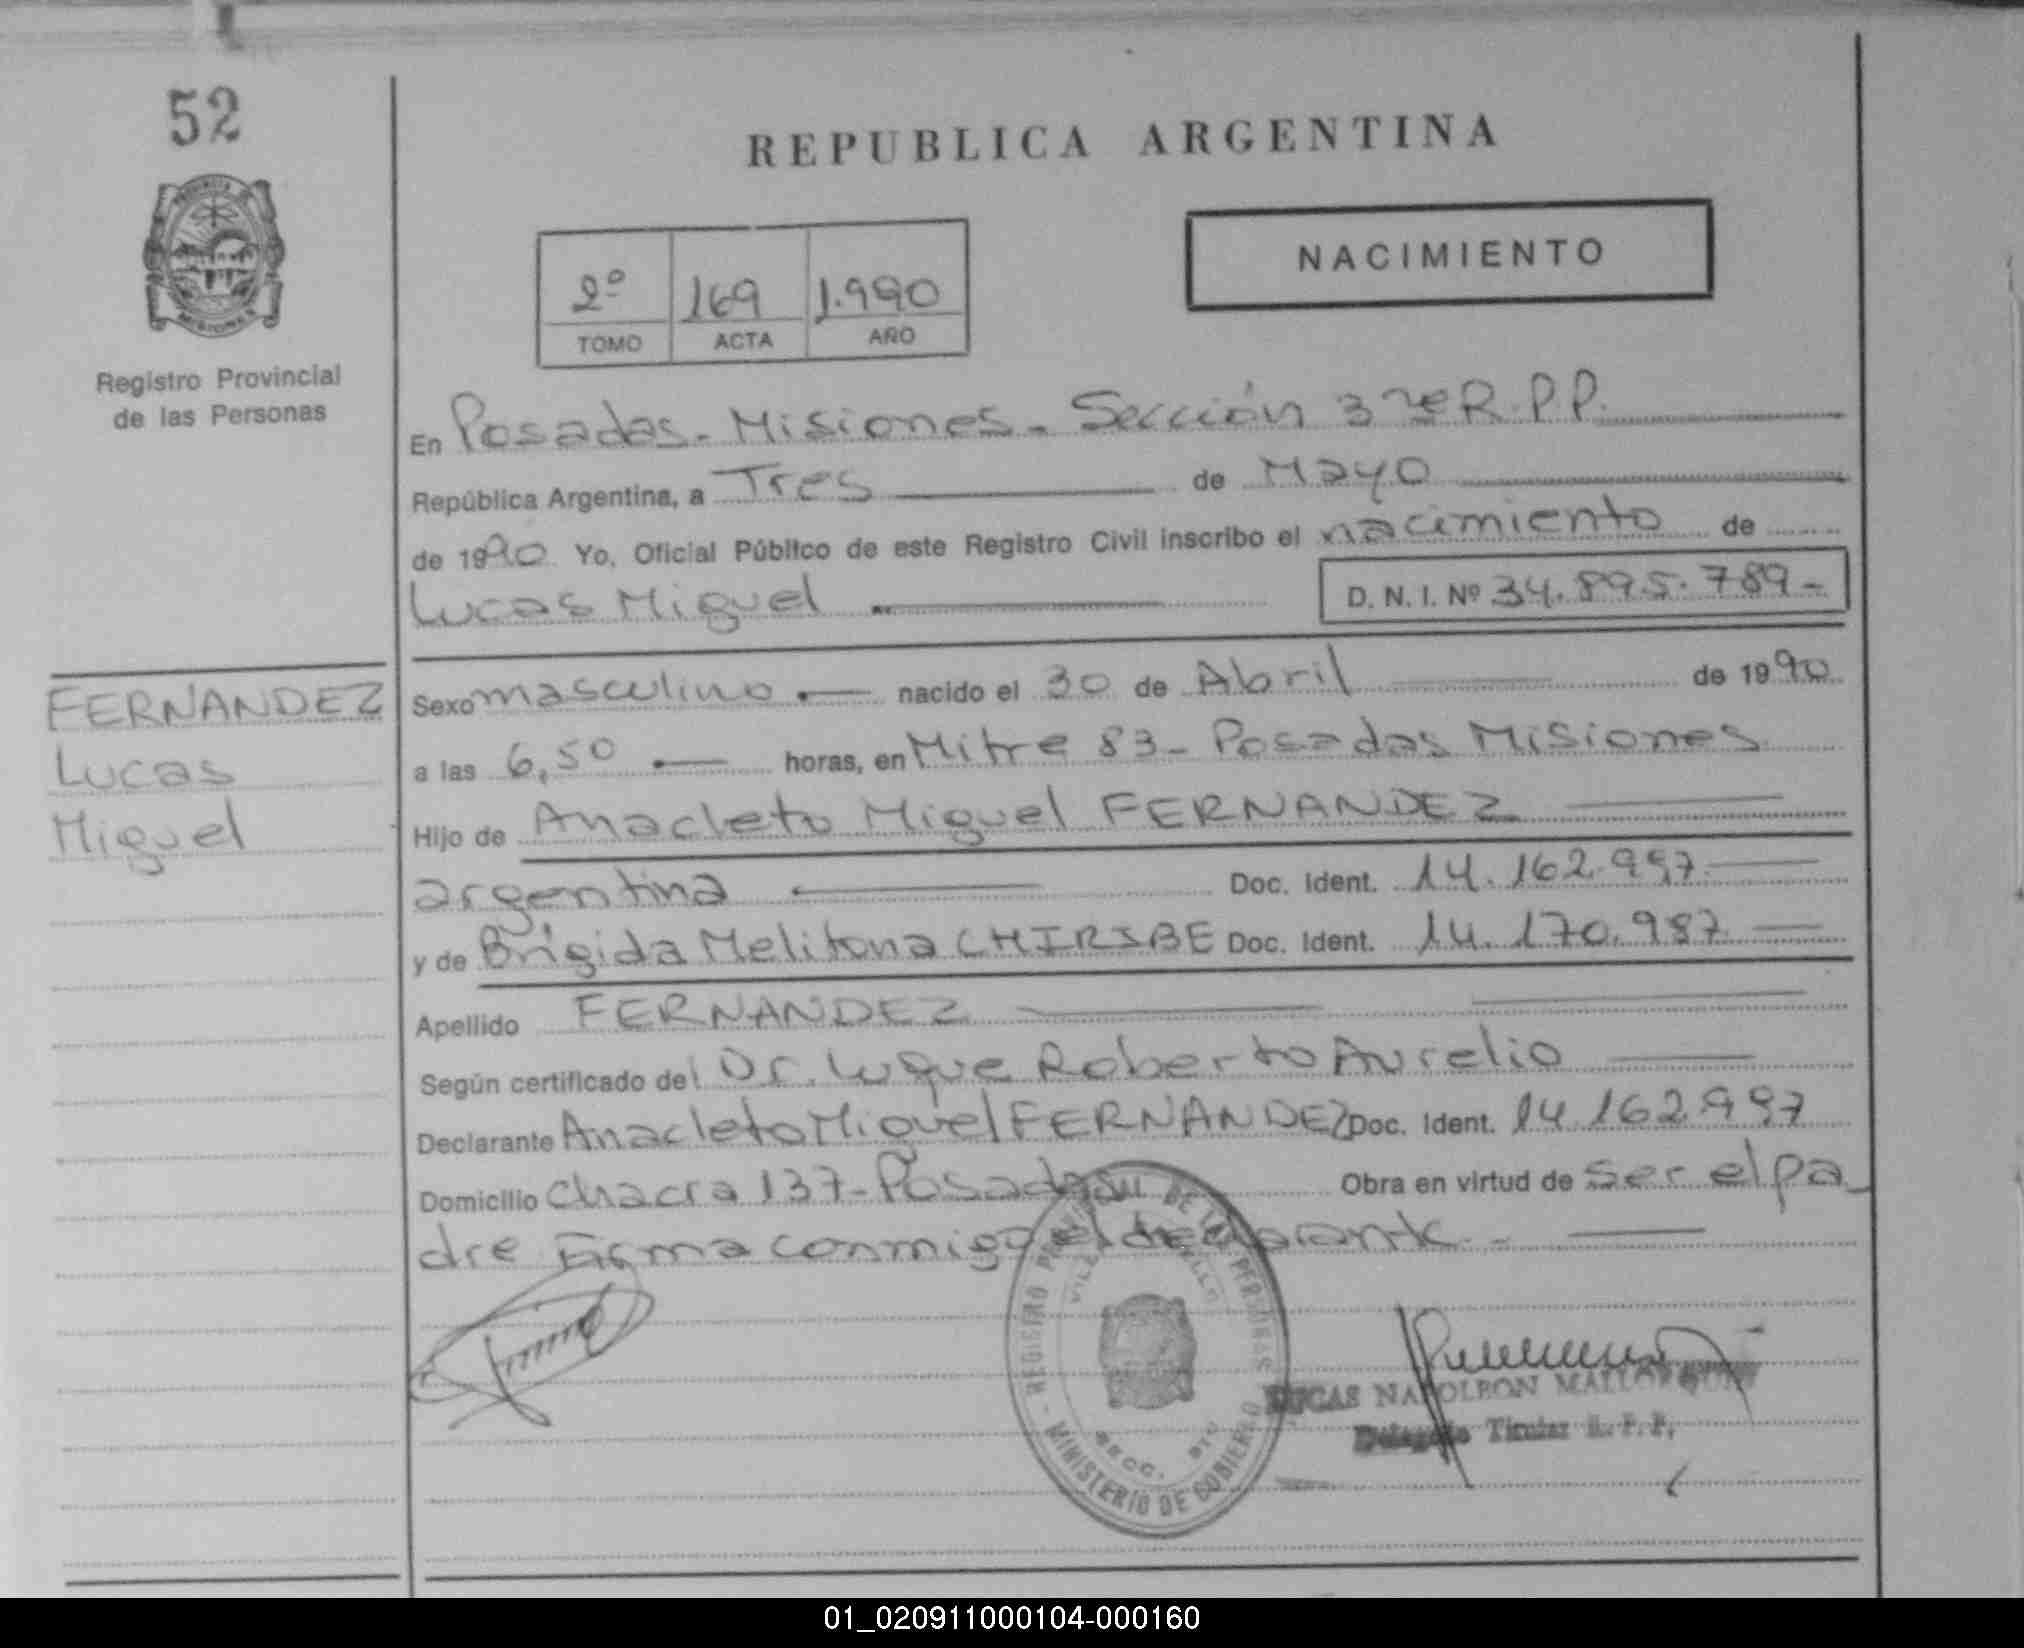 52
REPUBLICA ARGENTINA
NACIMIENTO
2º 169 1.990
TOMO ACTA AÑO
Registro Provincial
de las Personas
En Posadas - Misiones - Sección 3ra R.P.P.
República Argentina, a Tres de Mayo
de 1990 Yo, Oficial Público de este Registro Civil inscribo el nacimiento de
Lucas Miguel
D. N. I. Nº 34.895.789-
FERNANDEZ
Lucas
Miguel
Sexo masculino nacido el 30 de Abril de 1990
a las 6,50 horas, en Mitre 83 - Posadas Misiones
Hijo de Anacleto Miguel FERNANDEZ
argentina Doc. Ident. 14.162.997
y de Brígida Melitona CHIRIBE Doc. Ident. 14.170.987
Apellido FERNANDEZ
Según certificado del Dr. Luque Roberto Aurelio
Declarante Anacleto Miguel FERNANDEZ Doc. Ident. 14.162.997
Domicilio Chacra 137 - Posadas Obra en virtud de ser el pa-
dre Firma conmigo el declarante -
REGISTRO PROVINCIAL DE LAS PERSONAS
SECC.
MINISTERIO DE GOBIERNO
LUCAS NAPOLEON
Delegado Titular R. P. P.
01_020911000104-000160